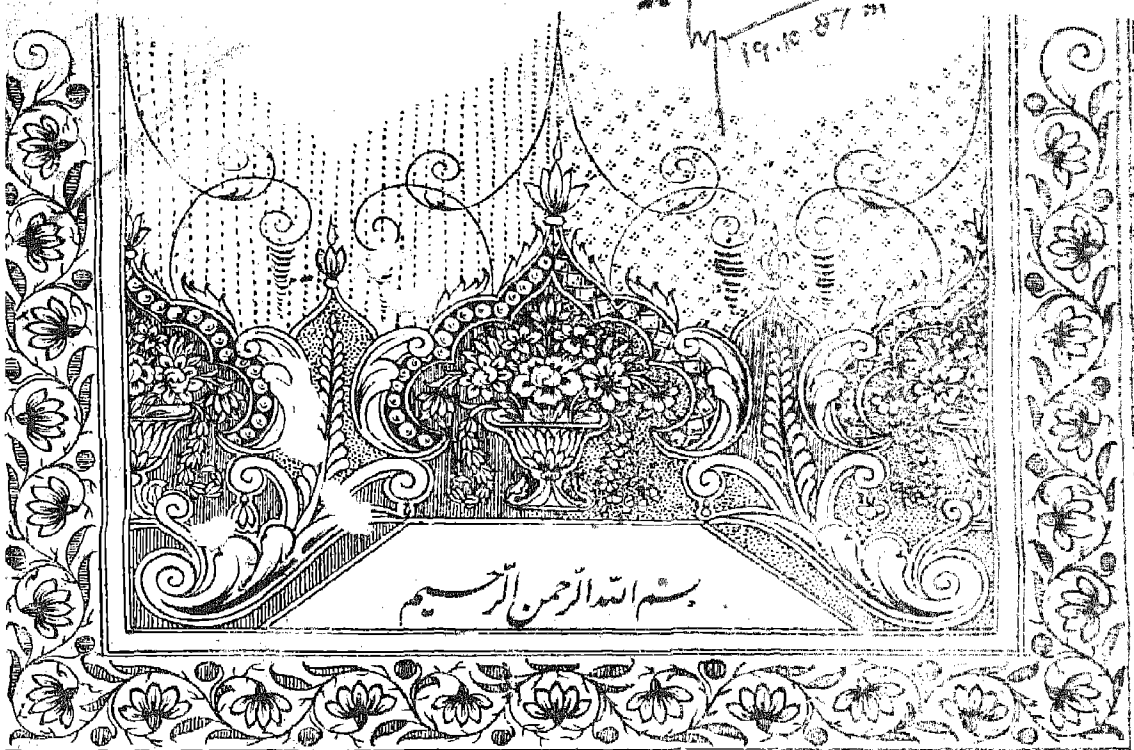 19.10.87
بسم الله الرحمن الرحيم